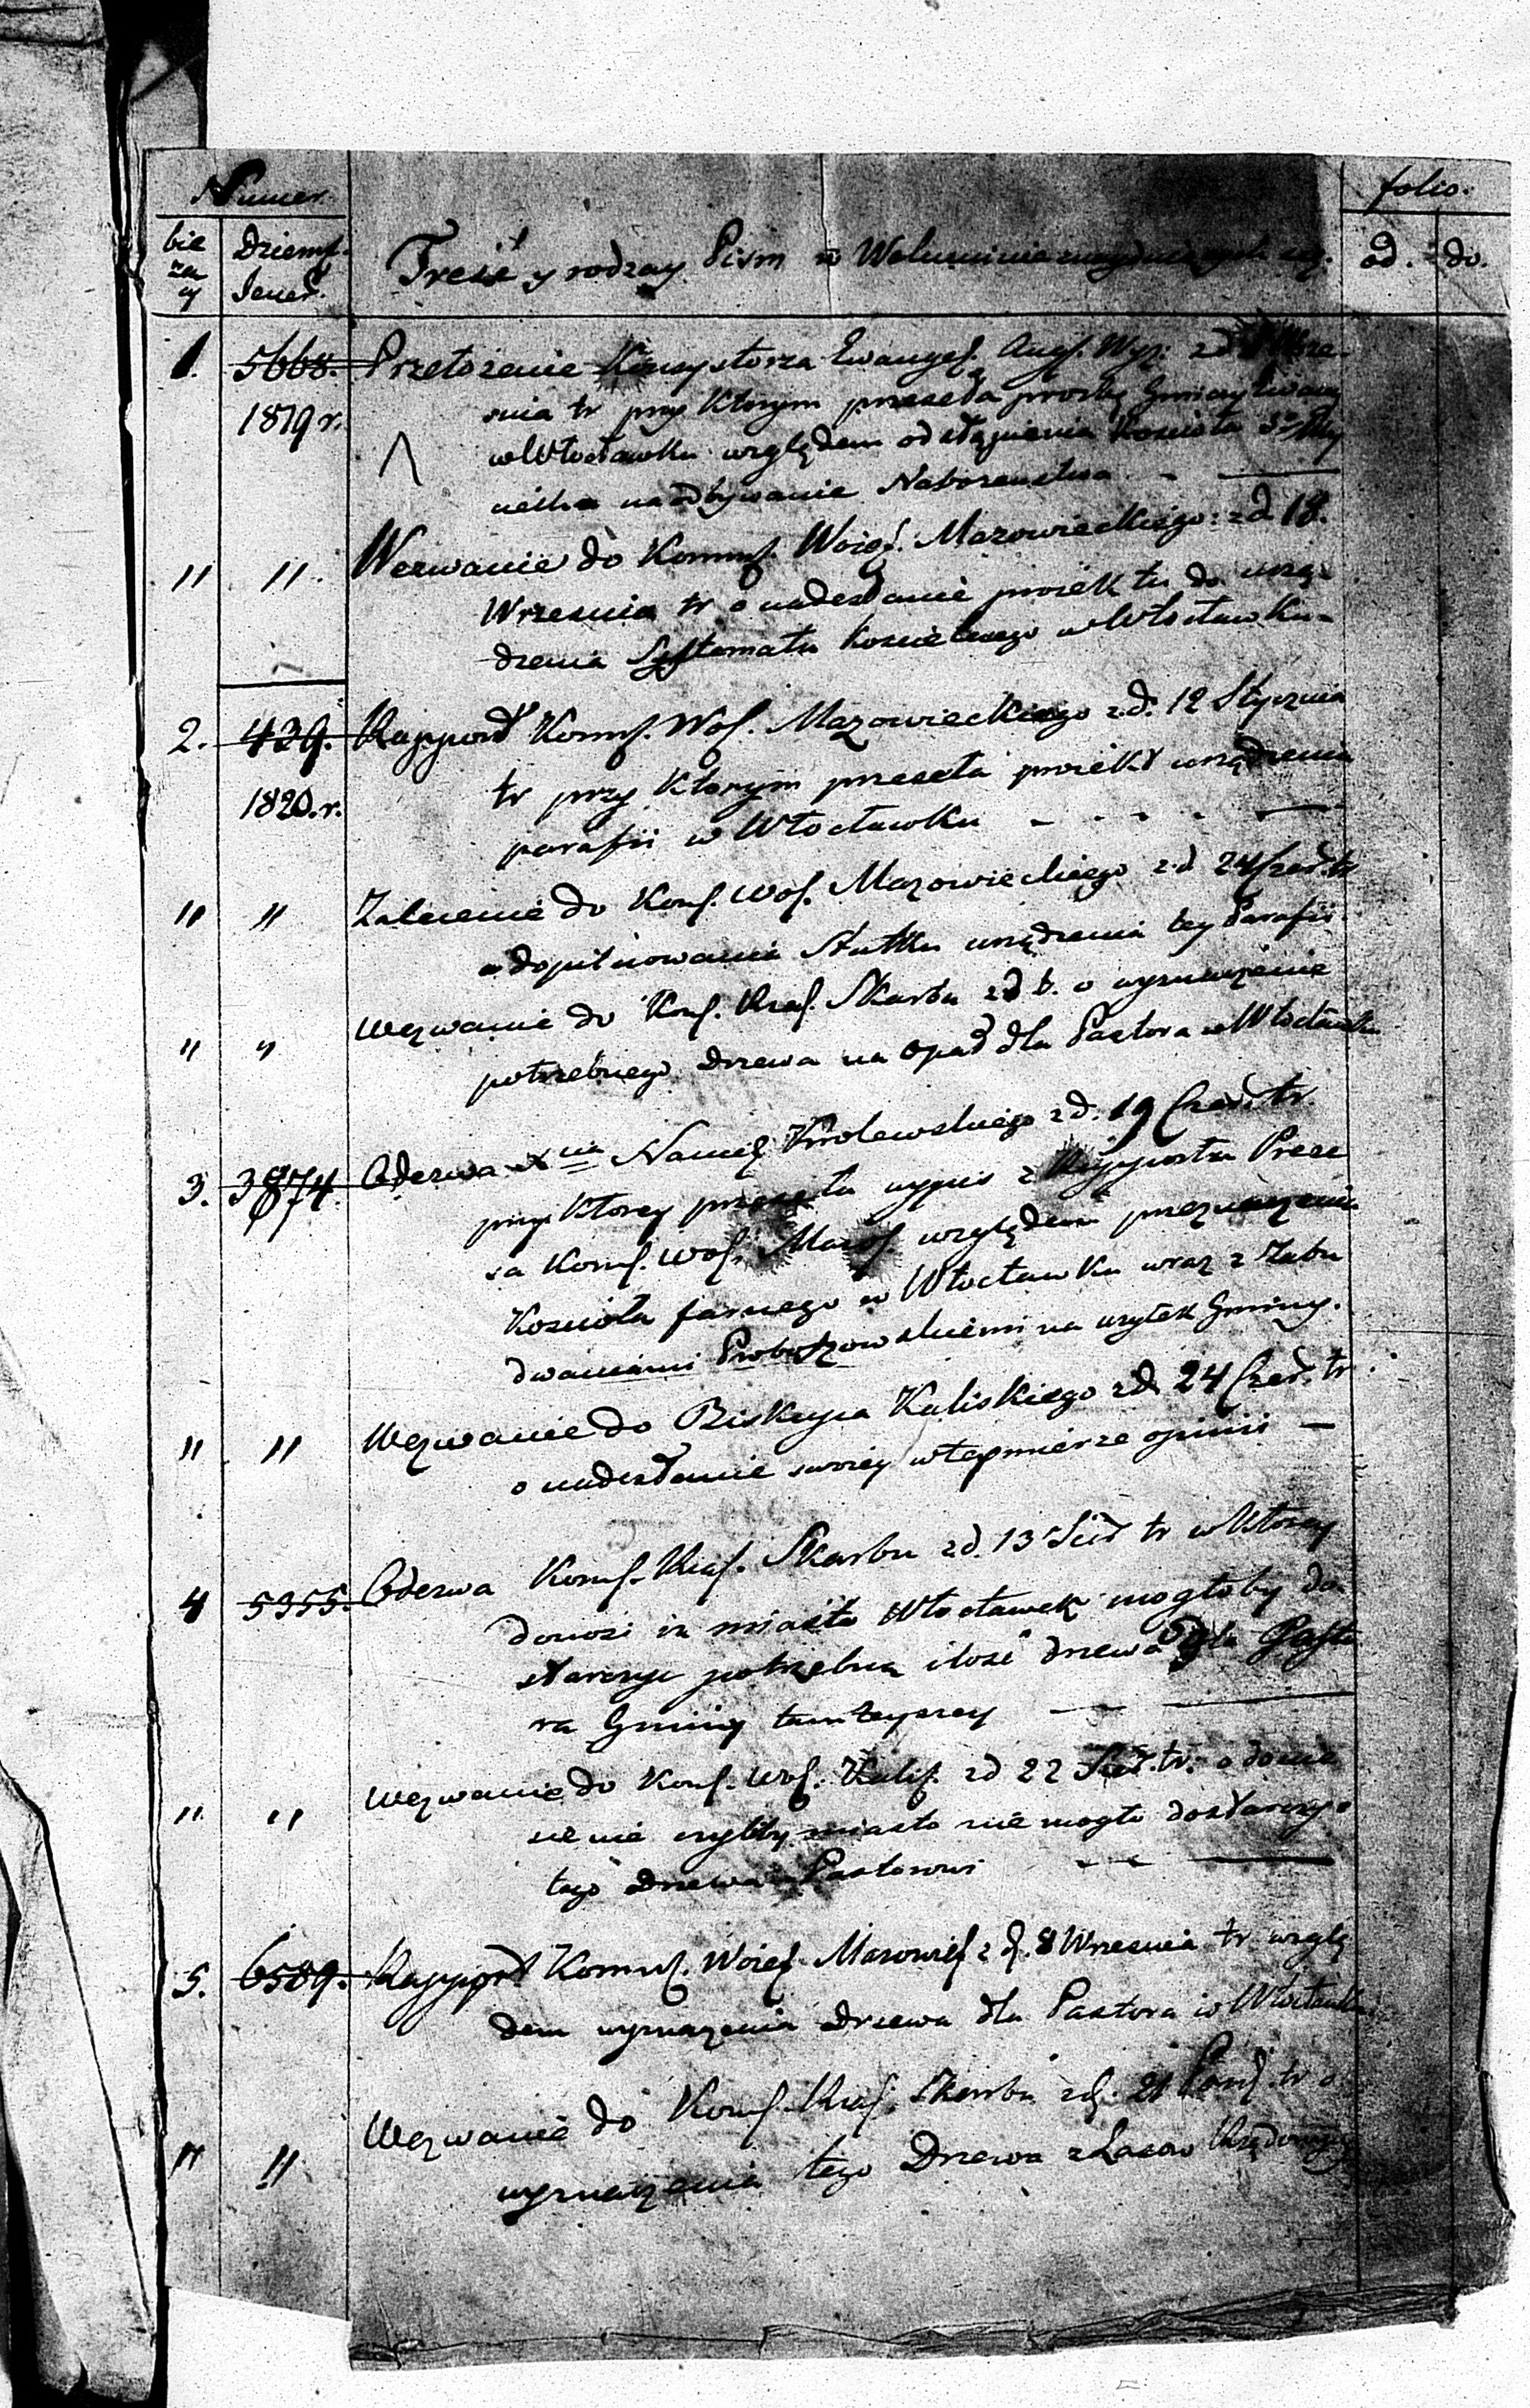 Numer. folio.
bie żą cy Dziennf. Jener. Treść y rodzay Pism w Woluminie znayduiących się. od. do.
1. 5668. Przełożenie Konsystorza Ewangel. Augs. Wyz: zd Wrze-
1819 r. śnia tr przy którym przeseła prozbę Gminy Ewang
w Włocławku względem odstąpienia Kościoła
na odbywanie Nabożeństwa - —
" " Wezwanie do Kommf. Woief. Mazowieckiego: zd 18.
Września tr o nadesłanie proiektu do urzą-
dzenia Systematu kościelnego w Włocławku-
2. 429. Rapport Kommf. Wof. Mazowieckiego z.d. 12 Stycznia
1820. r. tr przy którym przeseła proiekt urządzenia
parafii w Włocławku - - - - —
" " Zalecenie do Komf. Wof. Mazowieckiego z.d 24 Czer. tr
o dopilnowanie Skutku urządzenia tey Parafii.
" " Wezwanie do Komf. Rzaf. Skarbu zd t. o wyznaczenie
potrzebnego Drzewa na opał dla Pastora w Włocławku
3. 3874. Odezwa Xcia Namief Królewskiego z d. 19 Czer. tr.
przy którey przeseła wypis z Rapportu Preze
sa Komf. Wof. Mazof. względem przeznaczenia
Kościoła farnego w Włocławku wraz z Zabu
dwaniami Probostzowskiemi na użytek Gminy.
" " Wezwanie do Biskupa Kaliskiego z d. 24 Czer. tr
o nadesłanie swoiey w tey mierze opinii —
4 5355. Odezwa Komf. Rzaf. Skarbu zd. 13 Sier tr w którey
donosi iż miasto Włocławek mogłoby do-
starczyć potrzebną ilość drzewa dla Pasto
ra Gminy tamteyszey — —
" " Wezwanie do Komf. Wof. Kalif. zd 22 Sier. tr. o donie
sienie czyliby miasto nie mogło dostarczyć
tego Drzewa Pastorowi - - —
5. 6589. Rapport Kommf. Woief. Mazowief z d. 8 Września tr. wzglę
dem wyznaczenia Drzewa dla Pastora w Włocławku
" " Wezwanie do Komf. Rzaf. Skarbu zd. 21 Paźd. tr o
wyznaczenie tego Drzewa z Lasow Rządowych